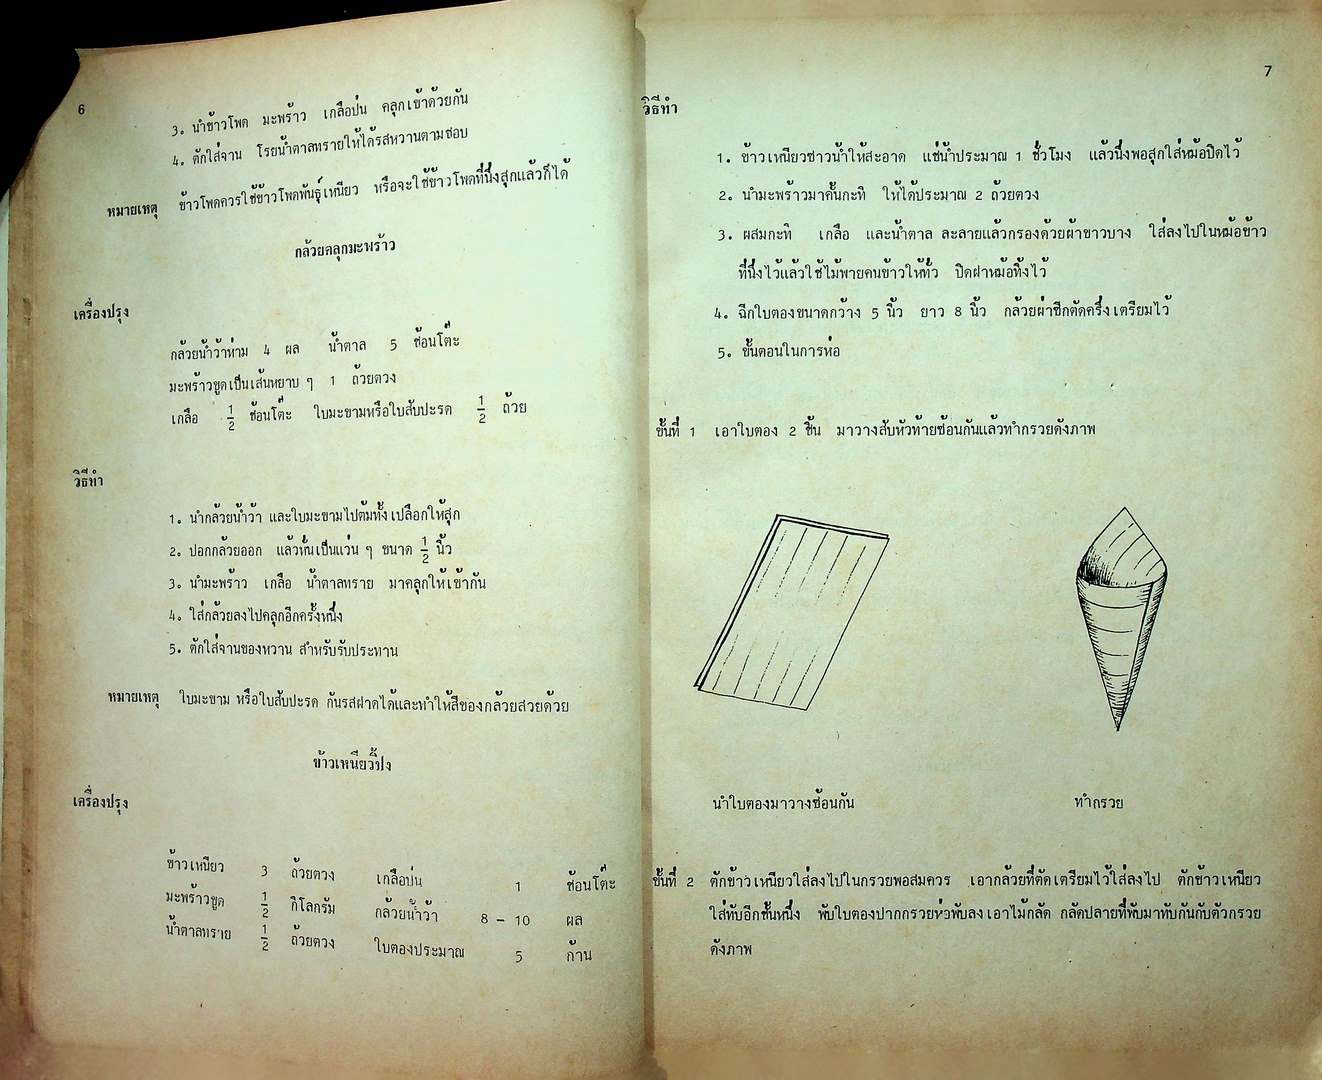 6
3. นำข้าวโพด มะพร้าว เกลือป่น คลุกเข้าด้วยกัน
4. ตักใส่จาน โรยน้ำตาลทรายให้ได้รสหวานตามชอบ
หมายเหตุ ข้าวโพดควรใช้ข้าวโพดพันธุ์เหนียว หรือจะใช้ข้าวโพดที่นึ่งสุกแล้วก็ได้
กล้วยคลุกมะพร้าว
เครื่องปรุง
กล้วยน้ำว้าห่าม 4 ผล น้ำตาล 5 ช้อนโต๊ะ
มะพร้าวขูดเป็นเส้นหยาบ ๆ 1 ถ้วยตวง
เกลือ 1/2 ช้อนโต๊ะ ใบมะขามหรือใบสับปะรด 1/2 ถ้วย
วิธีทำ
1. นำกล้วยน้ำว้า และใบมะขามไปต้มทั้งเปลือกให้สุก
2. ปอกกล้วยออก แล้วหั่นเป็นแว่น ๆ ขนาด 1/2 นิ้ว
3. นำมะพร้าว เกลือ น้ำตาลทราย มาคลุกให้เข้ากัน
4. ใส่กล้วยลงไปคลุกอีกครั้งหนึ่ง
5. ตักใส่จานของหวาน สำหรับรับประทาน
หมายเหตุ ใบมะขาม หรือใบสับปะรด กันรสฝาดได้และทำให้สีของกล้วยสวยด้วย
ข้าวเหนียวปิ้ง
เครื่องปรุง
ข้าวเหนียว 3 ถ้วยตวง เกลือป่น 1 ช้อนโต๊ะ
มะพร้าวขูด 1/2 กิโลกรัม กล้วยน้ำว้า 8 – 10 ผล
น้ำตาลทราย 1/2 ถ้วยตวง ใบตองประมาณ 5 ก้าน
7
วิธีทำ
1. ข้าวเหนียวซาวน้ำให้สะอาด แช่น้ำประมาณ 1 ชั่วโมง แล้วนึ่งพอสุกใส่หม้อปิดไว้
2. นำมะพร้าวมาคั้นกะทิ ให้ได้ประมาณ 2 ถ้วยตวง
3. ผสมกะทิ เกลือ และน้ำตาล ละลายแล้วกรองด้วยผ้าขาวบาง ใส่ลงไปในหม้อข้าว
ที่นึ่งไว้แล้วใช้ไม้พายคนข้าวให้ทั่ว ปิดฝาหม้อทิ้งไว้
4. ฉีกใบตองขนาดกว้าง 5 นิ้ว ยาว 8 นิ้ว กล้วยผ่าซีกตัดครึ่งเตรียมไว้
5. ขั้นตอนในการห่อ
ขั้นที่ 1 เอาใบตอง 2 ชิ้น มาวางสับหัวท้ายซ้อนกันแล้วทำกรวยดังภาพ
นำใบตองมาวางซ้อนกัน
ทำกรวย
ขั้นที่ 2 ตักข้าวเหนียวใส่ลงไปในกรวยพอสมควร เอากล้วยที่ตัดเตรียมไว้ใส่ลงไป ตักข้าวเหนียว
ใส่ทับอีกชั้นหนึ่ง พับใบตองปากกรวยห่วพับลงเอาไม้กลัด กลัดปลายที่พับมาทับกันกับตัวกรวย
ดังภาพ